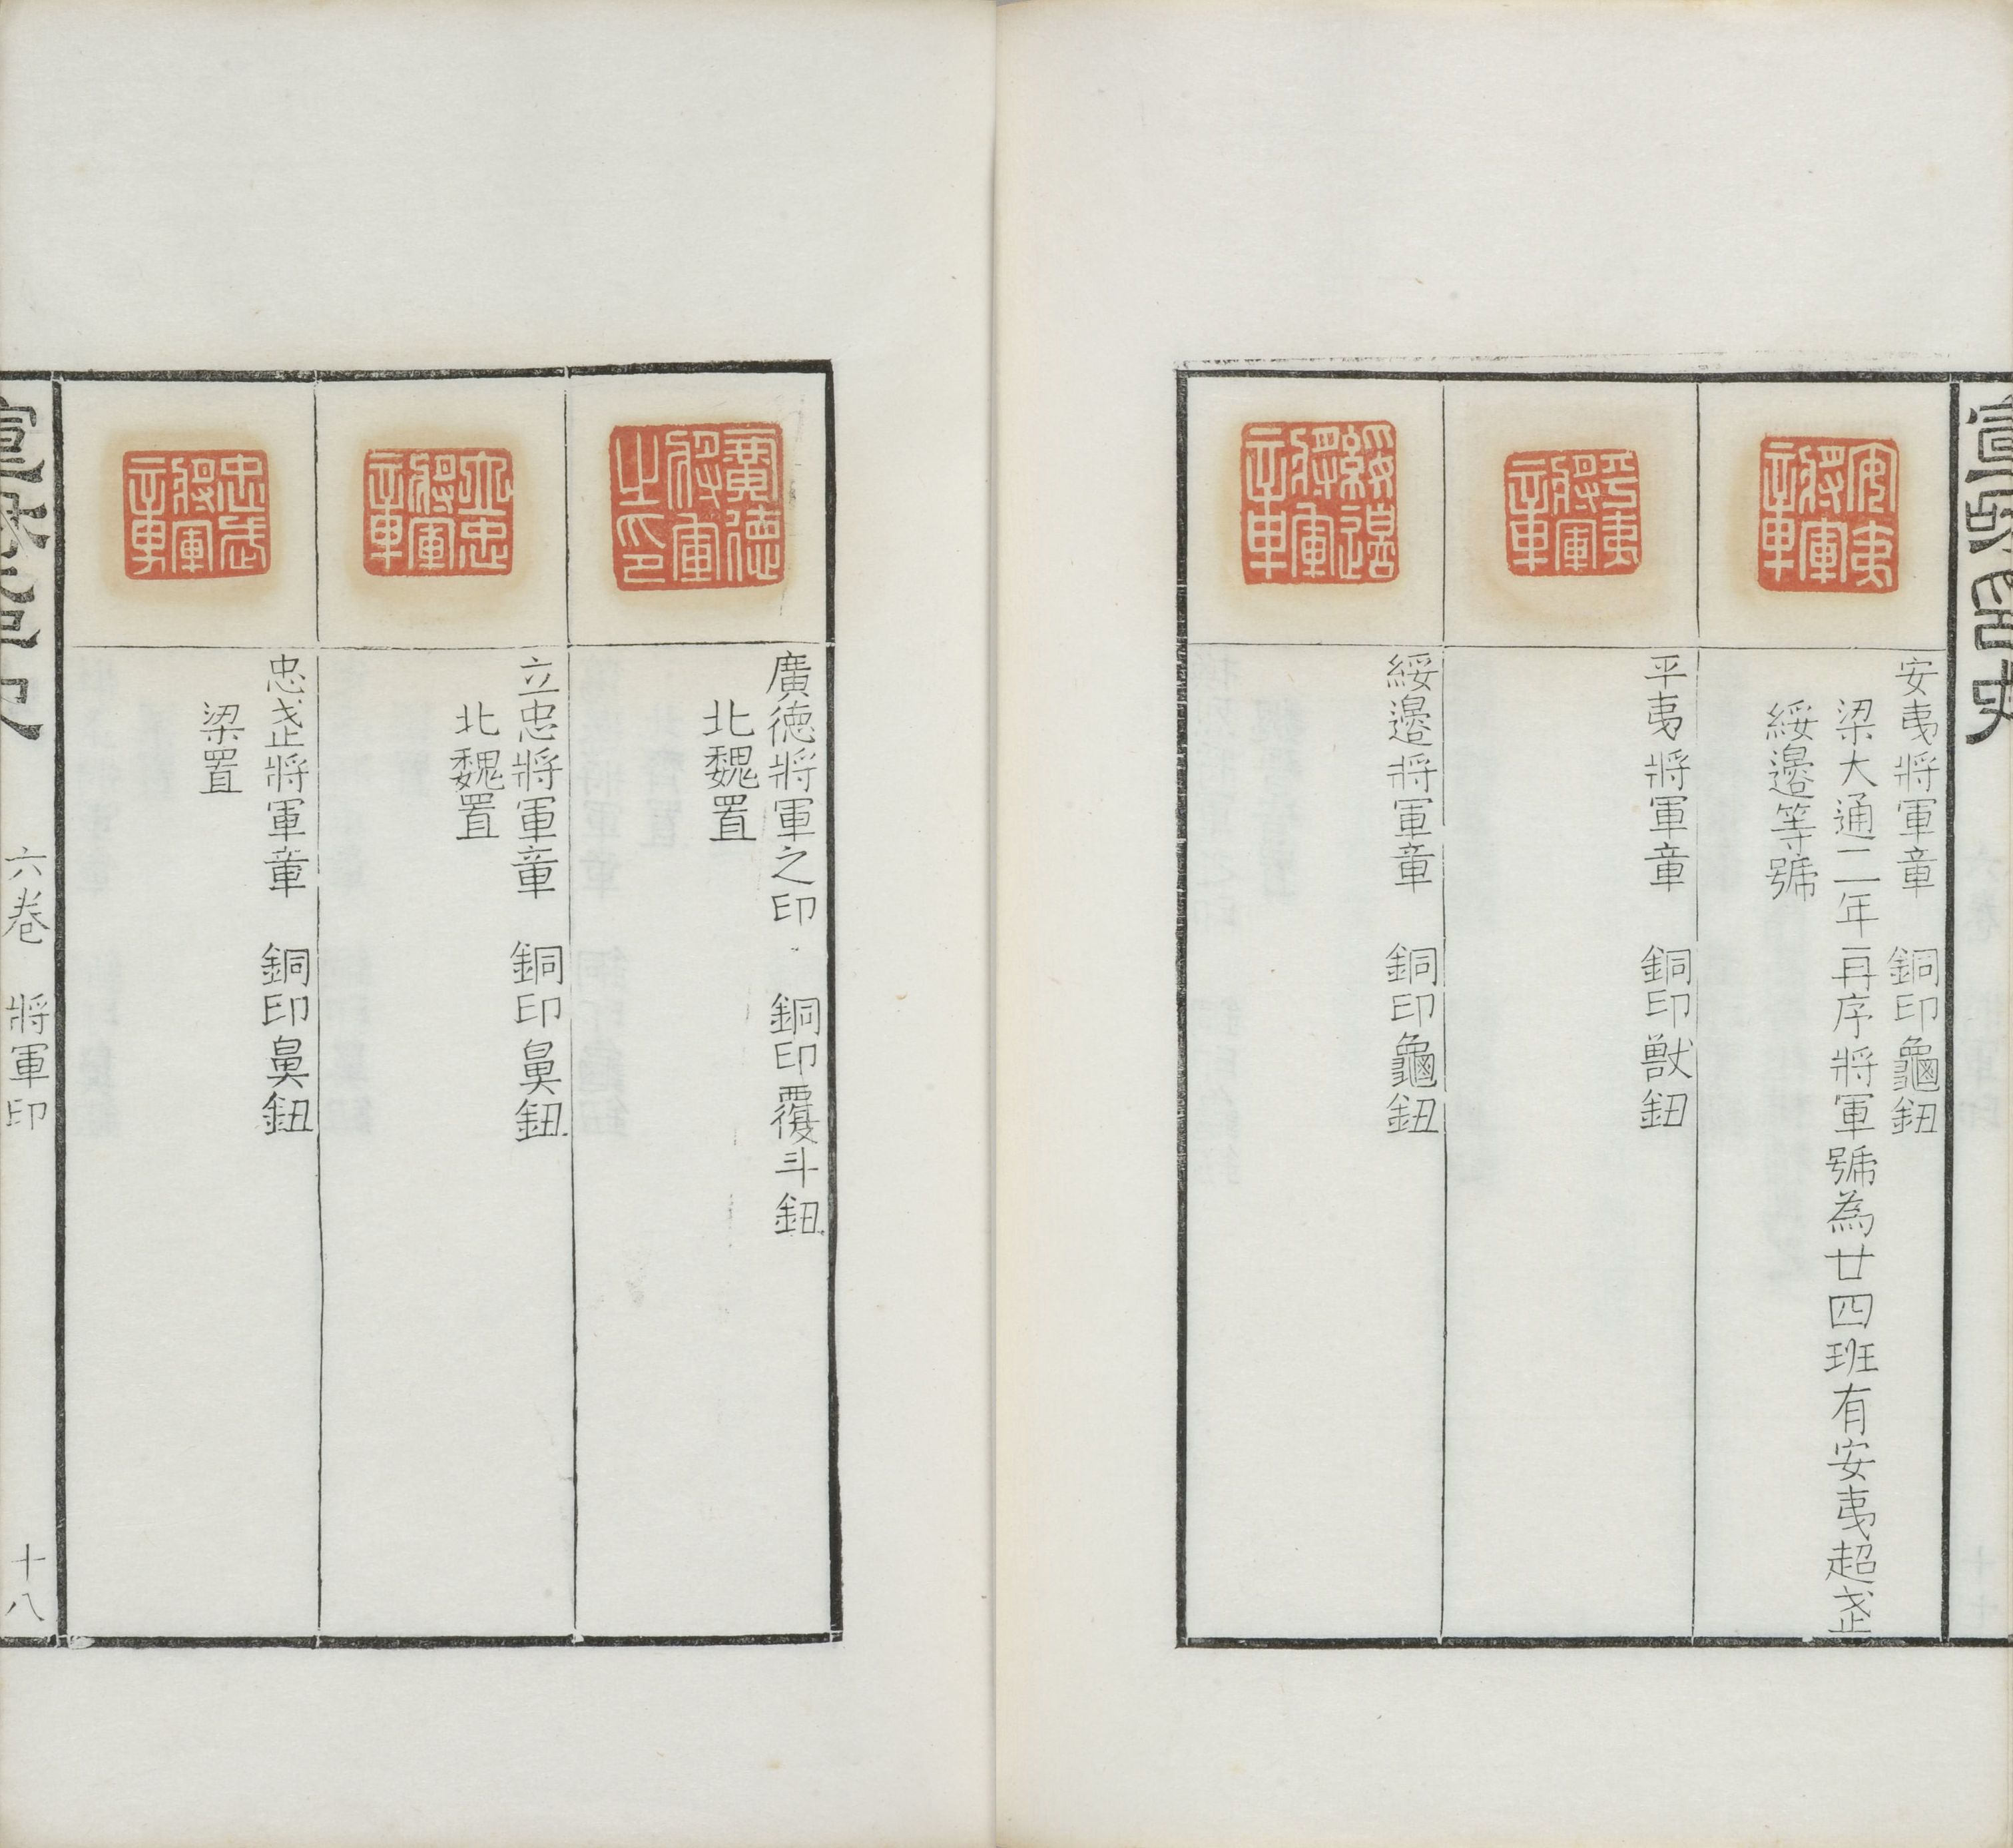 宣和印史
安夷將軍章
安夷將軍章　銅印龜鈕
梁大通二年再序將軍號為廿四班有安夷超武
綏邊等號
平夷將軍章
平夷將軍章　銅印獸鈕
綏邊將軍章
綏邊將軍章　銅印龜鈕
廣德將軍之印
廣德將軍之印　銅印覆斗鈕
北魏置
立忠將軍章
立忠將軍章　銅印鼻鈕
北魏置
忠武將軍章
忠武將軍章　銅印鼻鈕
梁置
六卷　將軍印　十八